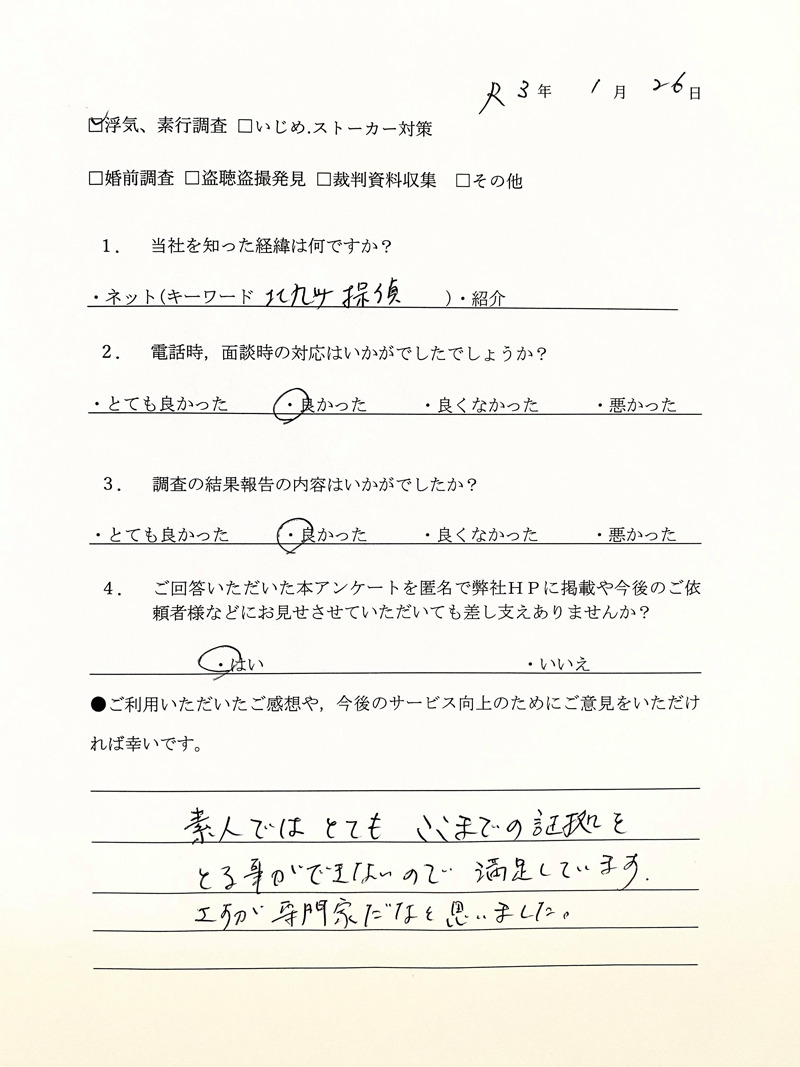 R 3 年 1 月 26 日
☑浮気、素行調査 □いじめ.ストーカー対策
□婚前調査 □盗聴盗撮発見 □裁判資料収集 □その他
１． 当社を知った経緯は何ですか？
・ネット(キーワード 北九州 探偵 )・紹介
２． 電話時，面談時の対応はいかがでしたでしょうか？
・とても良かった ・良かった ・良くなかった ・悪かった
３． 調査の結果報告の内容はいかがでしたか？
・とても良かった ・良かった ・良くなかった ・悪かった
４． ご回答いただいた本アンケートを匿名で弊社ＨＰに掲載や今後のご依
頼者様などにお見せさせていただいても差し支えありませんか？
・はい ・いいえ
●ご利用いただいたご感想や，今後のサービス向上のためにご意見をいただけ
れば幸いです。
素人では とても ここまでの証拠を
とる事ができないので 満足しています.
さすが 専門家だなと思いました。